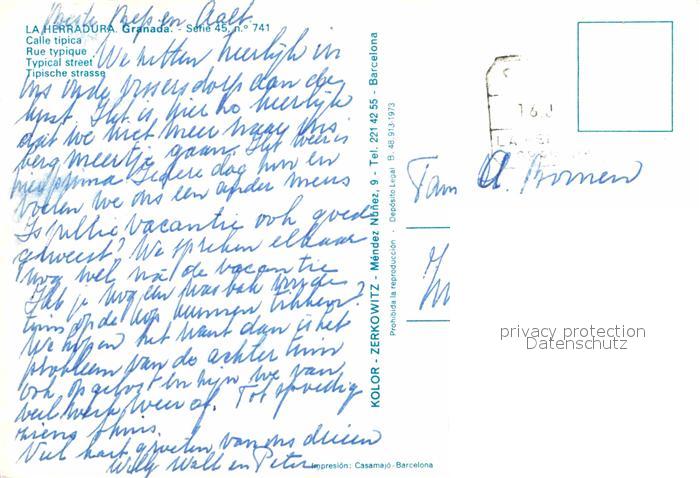 Beste Bep en Aalt.
LA HERRADURA. Granada. - Serie 45, n.° 741
Calle típica
Rue typique
Typical street
Tipische strasse
We zitten heerlijk in
ons oude vissersdorp aan de
kust. Het is hier zo heerlijk
dat we niet meer naar ons
berg meertje gaan. Het weer is
prima. Iedere dag zon en
voelen we ons een ander mens
Is jullie vacantie ook goed
geweest? We spreken elkaar
nog wel na de vacantie
Heb je nog een
tuin op de kop kunnen tikken?
We hopen het want dan is het
probleem van de achter tuin
ook opgelost en zijn we van
veel werk weer af. Tot spoedig
ziens thuis.
Veel hart. groeten van ons drieen
Willy Wall en Peter
Impresión: Casamajó - Barcelona
KOLOR - ZERKOWITZ - Méndez Núñez, 9 - Tel. 221 42 55 - Barcelona
Prohibida la reproducción - Depósito Legal B. 48.913-1973
16 J
LA HER
Fam A.
privacy protection
Datenschutz